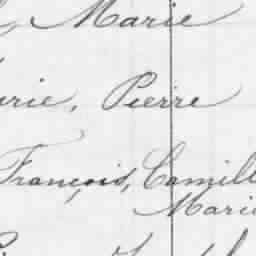 Marie
Pierre
François, Camill
Mari